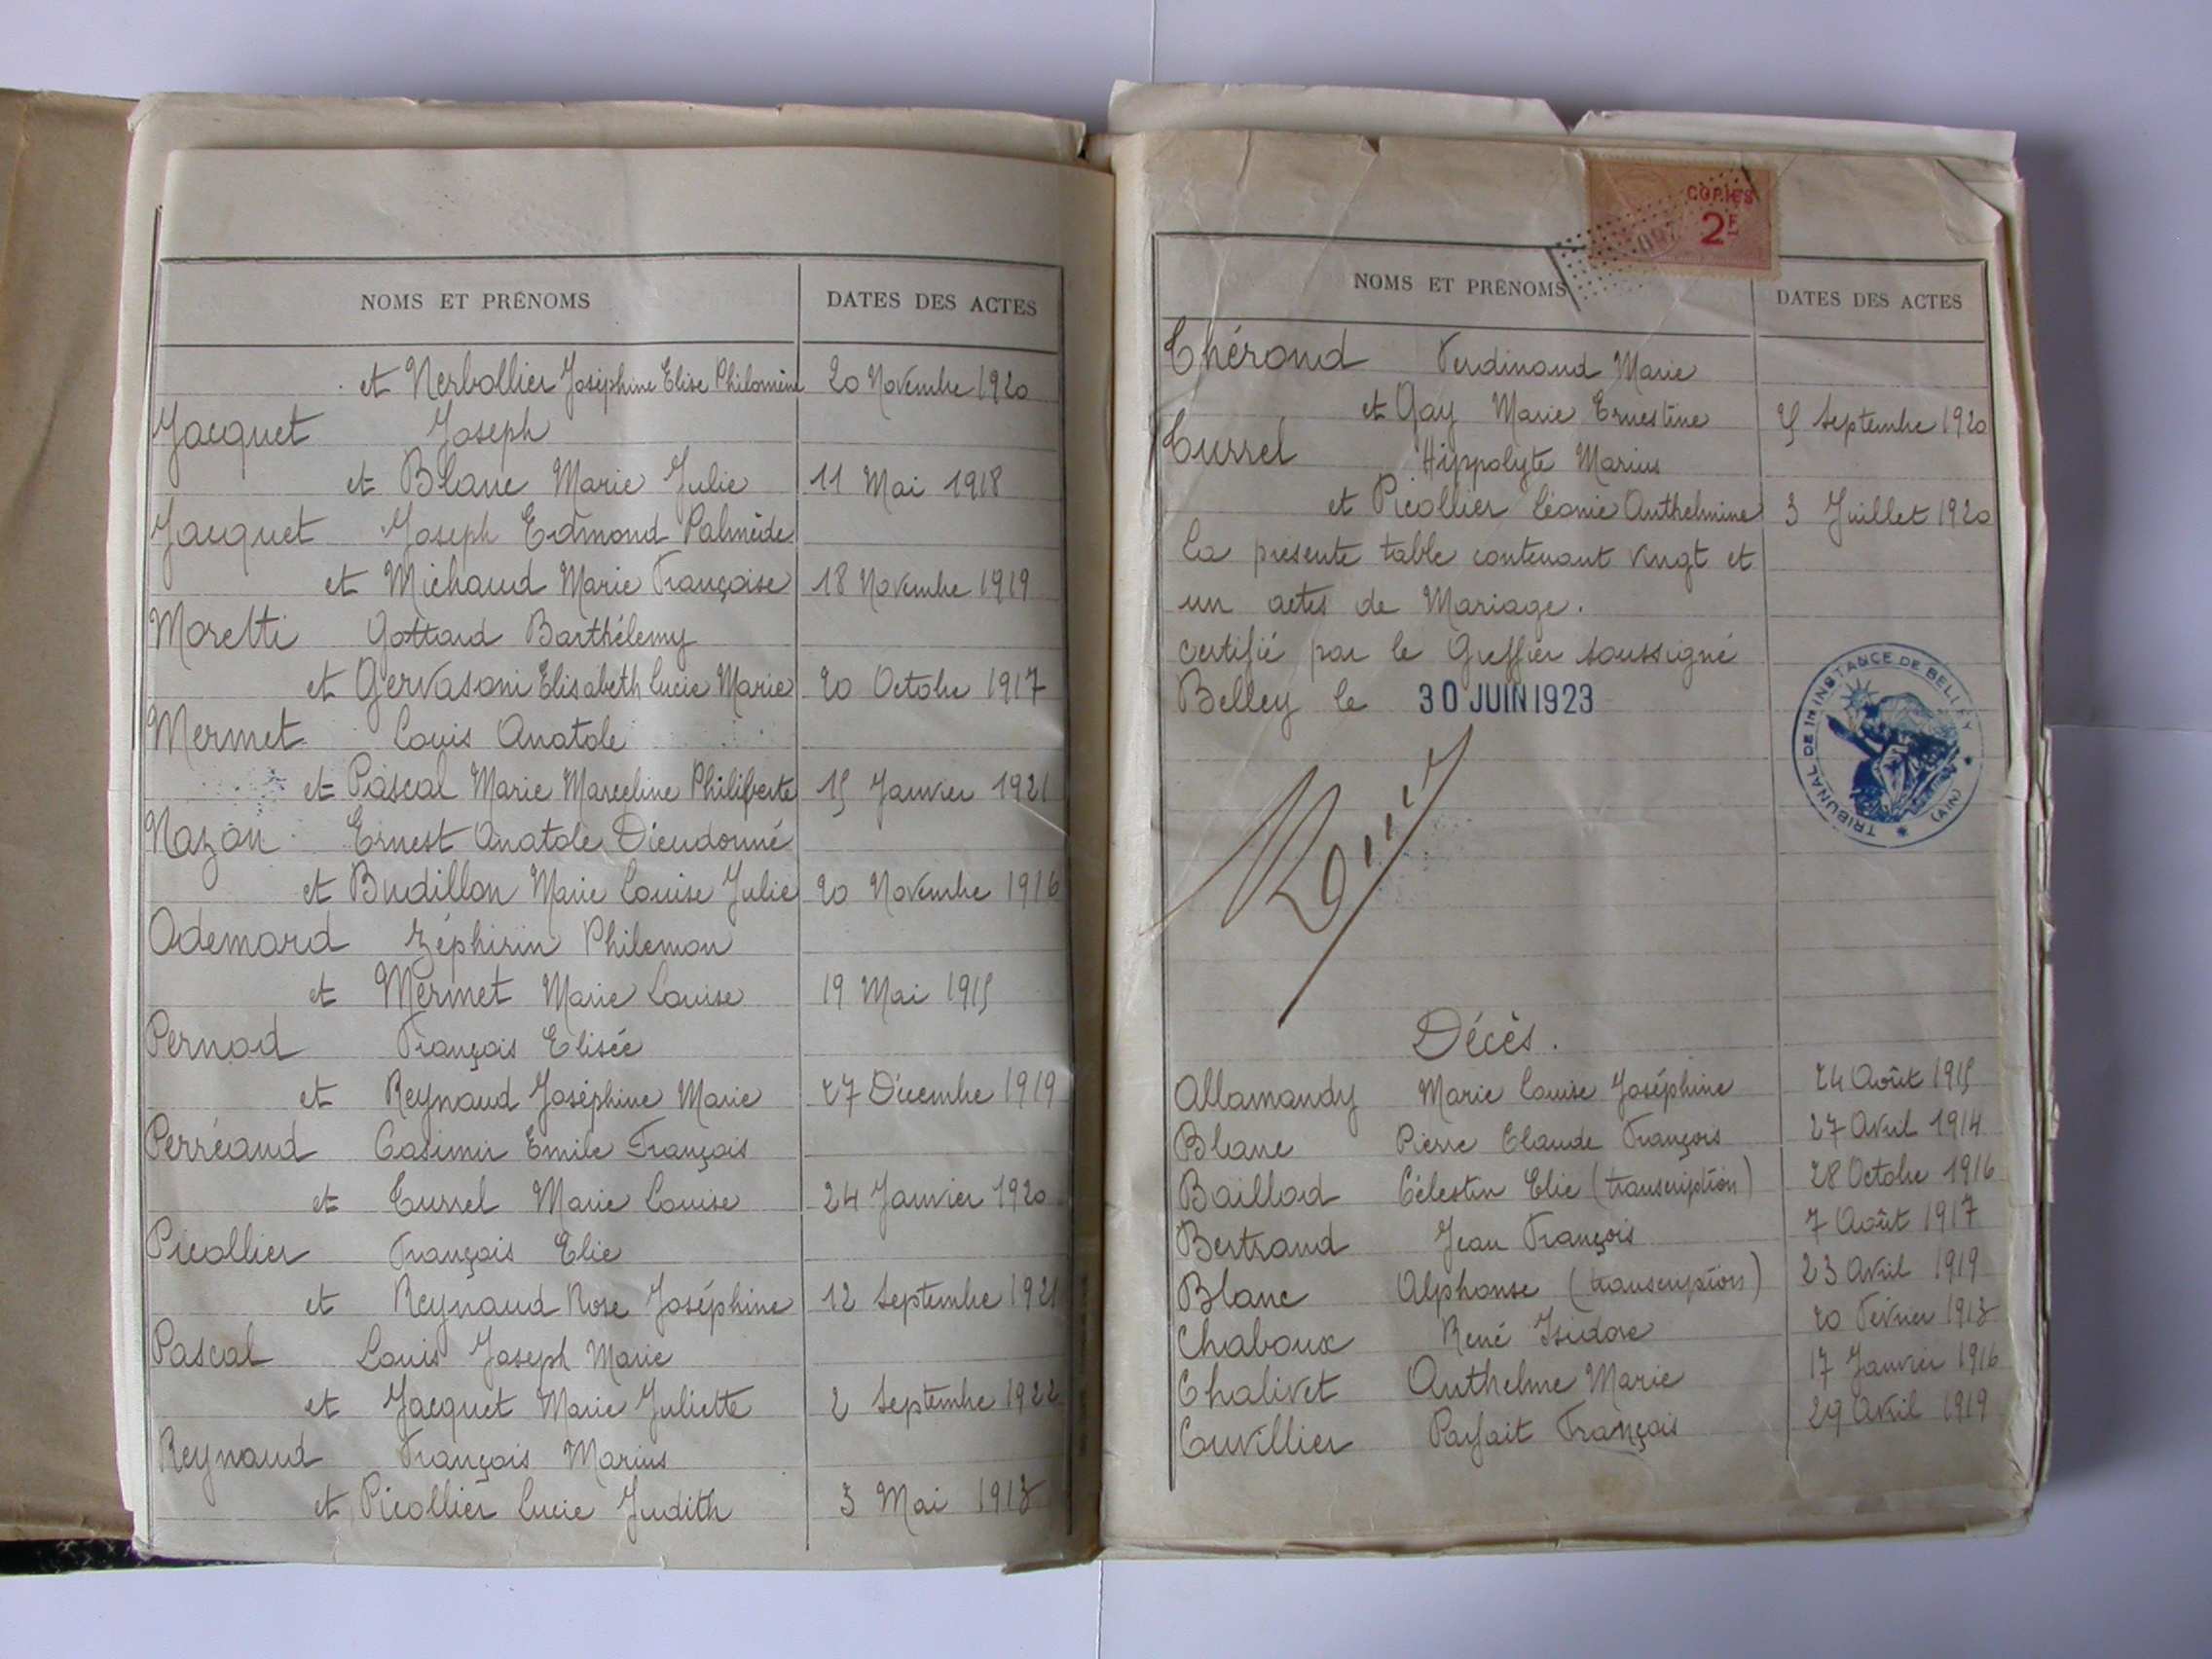 NOMS ET PRÉNOMS DATES DES ACTES
et Nerbollier Joséphine Elise Philomène 20 Novembre 1920
Jacquet Joseph
et Blanc Marie Julie 11 Mai 1918
Jacquet Joseph Edmond Palmède
et Michaud Marie Françoise 18 Novembre 1919
Moretti Gottard Barthélemy
et Gervasoni Elisabeth Lucie Marie 20 Octobre 1917
Mermet Louis Anatole
et Pascal Marie Marceline Philiberte 15 Janvier 1921
Nazon Ernest Anatole Dieudonné
et Budillon Marie Louise Julie 20 Novembre 1916
Odemard Zéphirin Philemon
et Mermet Marie Louise 19 Mai 1915
Pernod François Elisée
et Reynaud Joséphine Marie 27 Décembre 1919
Perréaud Casimir Emile François
et Cussel Marie Louise 24 Janvier 1920
Picollier François Elie
et Reynaud Rose Joséphine 12 Septembre 1921
Pascal Louis Joseph Marie
et Jacquet Marie Juliette 2 Septembre 1922
Reynaud François Marius
et Picollier Lucie Judith 3 Mai 1913
COPIES
2F
NOMS ET PRÉNOMS DATES DES ACTES
Chérond Ferdinand Marie
et Gay Marie Ernestine 25 Septembre 1920
Cussel Hippolyte Marius
et Picollier Léonie Anthelmine 3 Juillet 1920
La présente table contenant vingt et
un actes de Mariage.
certifié par le Greffier soussigné
Belley le 30 JUIN 1923
TRIBUNAL DE 1re INSTANCE DE BELLEY (AIN)
Décès.
Allamandy Marie Louise Joséphine 24 Août 1915
Blanc Pierre Claude François 27 Avril 1914
Baillod Célestin Elie (transcription) 28 Octobre 1916
Bertrand Jean François 7 Août 1917
Blanc Alphonse (transcription) 23 Avril 1919
Chaboux René Isidore 20 Février 1913
Chalivet Anthelme Marie 17 Janvier 1916
Cuvillier Parfait François 29 Avril 1919